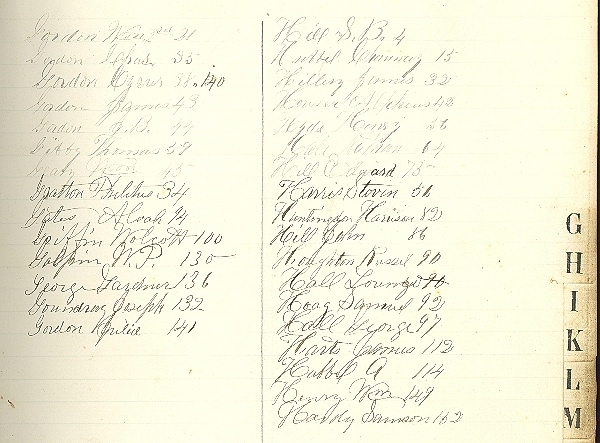 Gordon Wm 2nd 21
Gordon Chas. 35
Gordon Cyrus 38, 140
Gadon James 43
Gadon G.B. 44
Thomas 59
45
Gratton 34
Gates Noah 94
Griffin Wolcott 100
Galpin W.P. 130
George Gardner 136
Goundrey Joseph 139
Gordon 141
Hill S. B. 4
Hubbel 15
Hillery James 32
42
Hyde Henry 56
64
Hill Edward 75
Harris Stovin 56
Huntington Harison 82
Hill John 86
Houghton Russel 90
Hall Lorenzo 90
Hoag Samuel 92
Hall George 97
Harts James 112
Hubbel A 114
Henry Wm 149
Hardy Samson 152
G
H
I
K
L
M